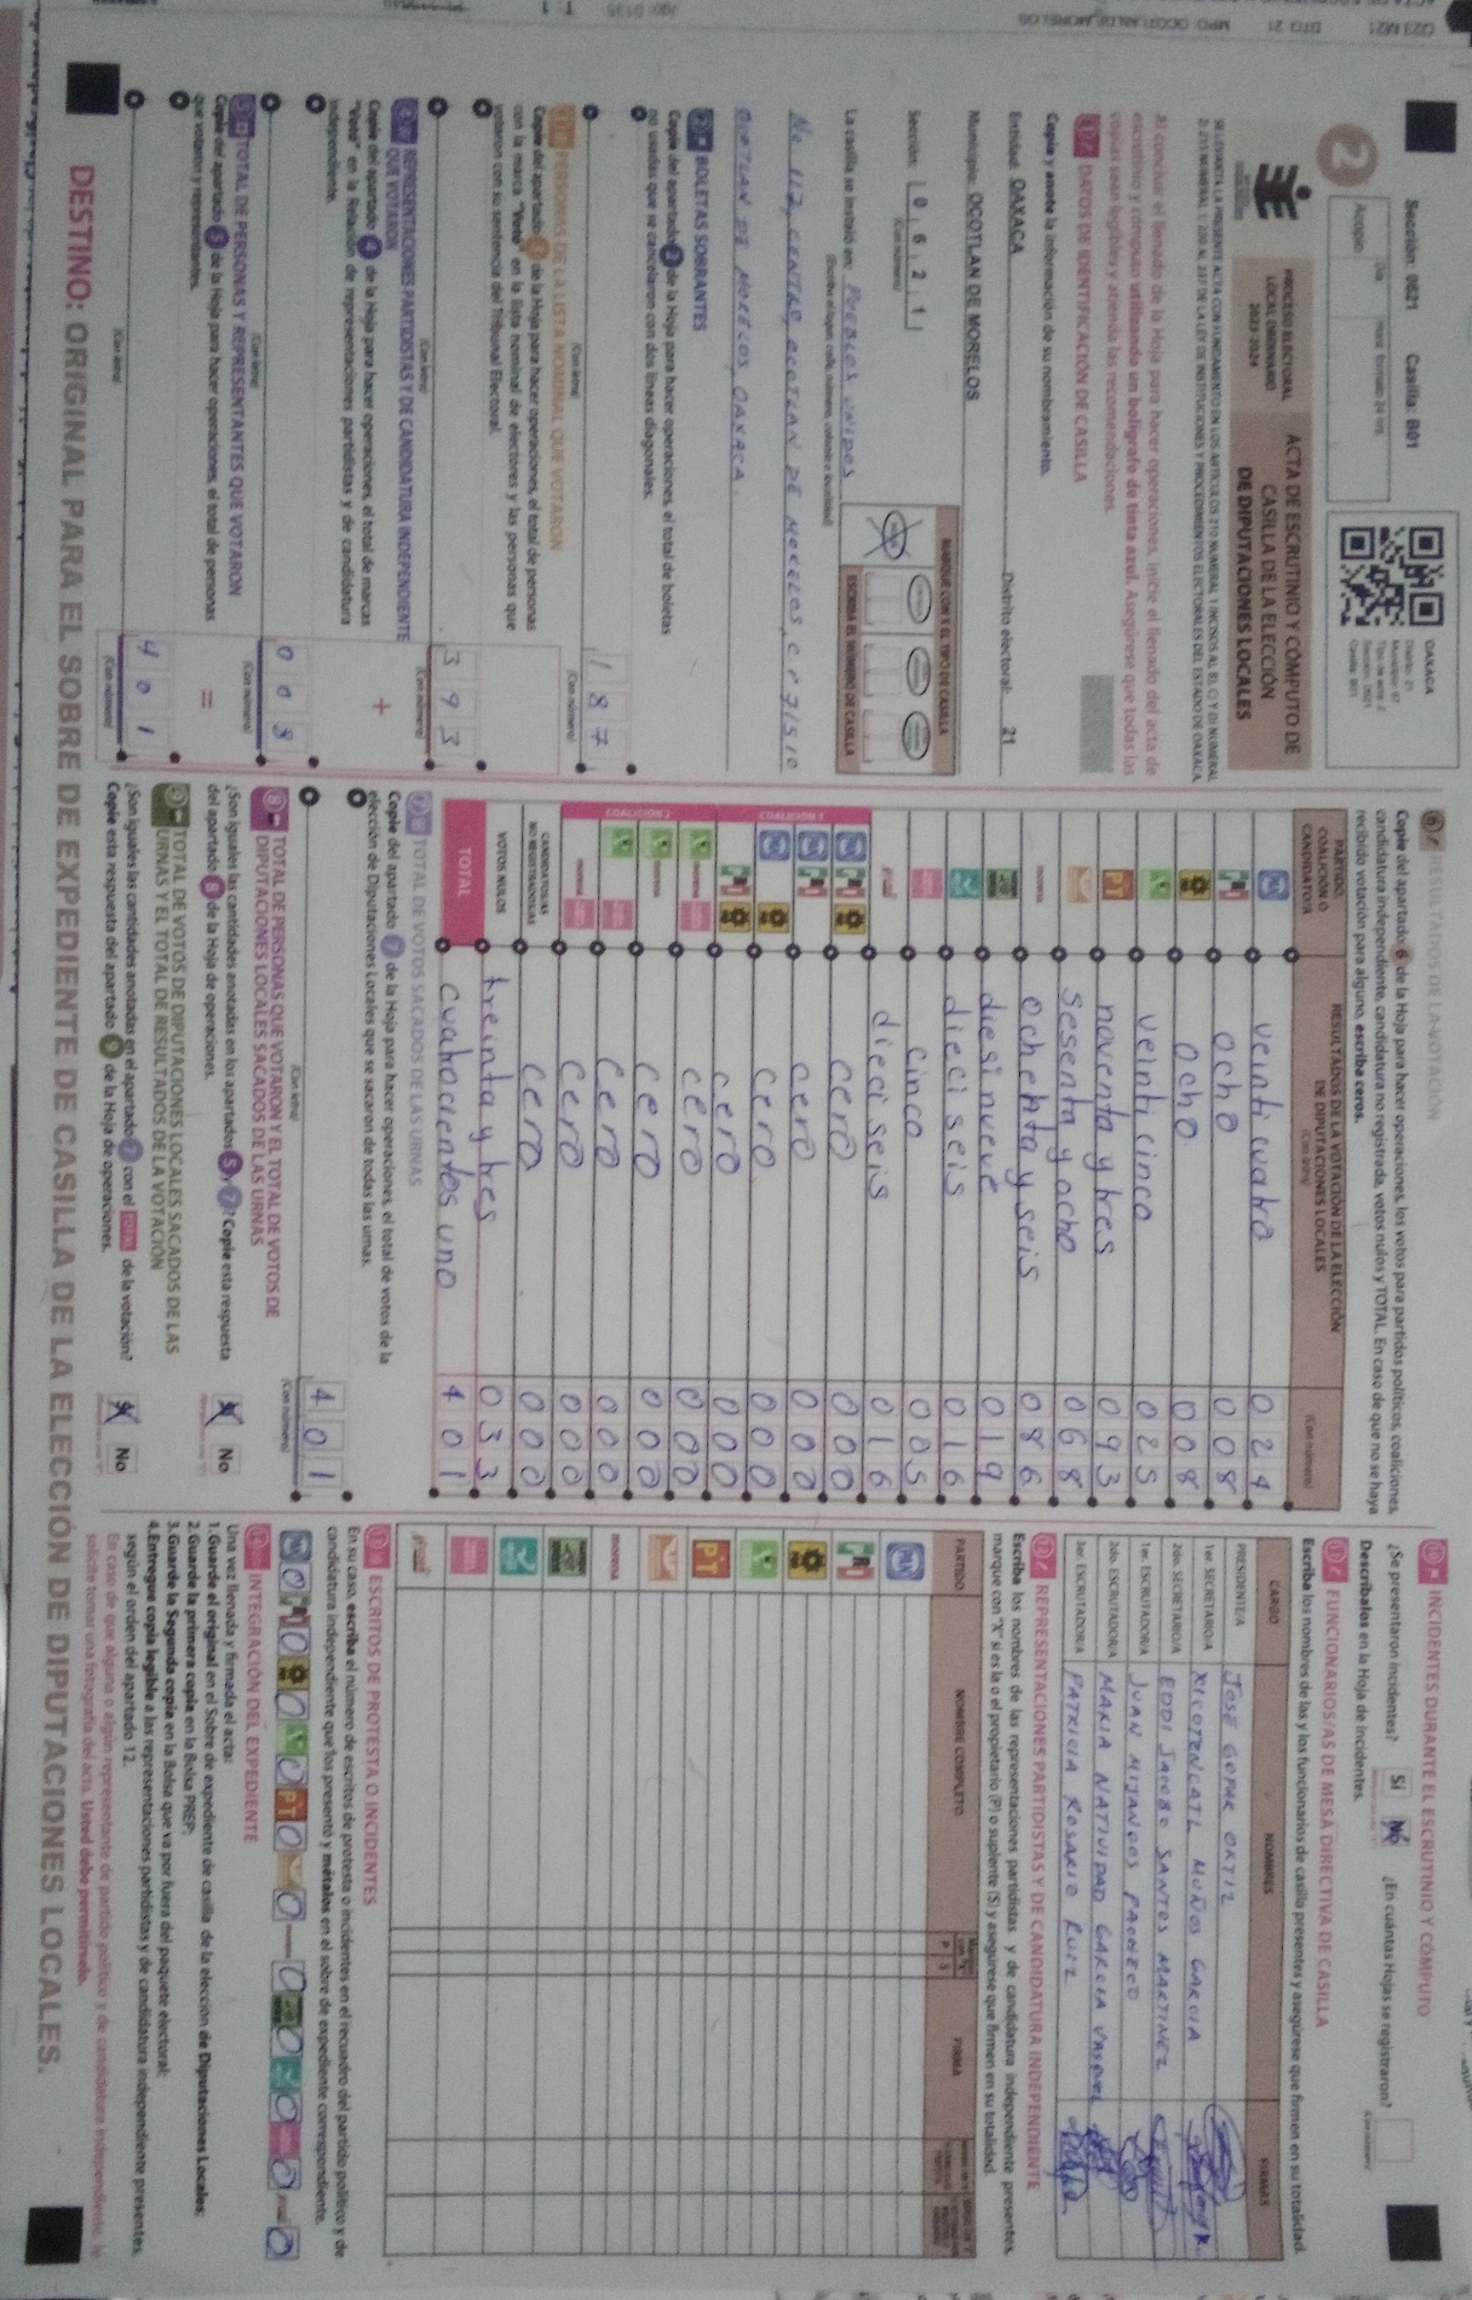 Sección: 0621 Casilla: B01
OAXACA
2
Acopio
PROCESO ELECTORAL LOCAL ORDINARIO 2023-2024
ACTA DE ESCRUTINIO Y CÓMPUTO DE CASILLA DE LA ELECCIÓN DE DIPUTACIONES LOCALES
Al concluir el llenado de la Hoja para hacer operaciones, inicie el llenado del acta de
escrutinio y cómputo utilizando un bolígrafo de tinta azul. Asegúrese que todas las
copias sean legibles y atienda las recomendaciones.
DATOS DE IDENTIFICACIÓN DE CASILLA
Copie y anote la información de su nombramiento.
Entidad: OAXACA Distrito electoral: 21
Municipio: OCOTLAN DE MORELOS
Sección: 0 6 2 1
(Con número)
MARQUE CON X EL TIPO DE CASILLA
ESCRIBA EL NÚMERO DE CASILLA
La casilla se instaló en: PUEBLOS UNIDOS
No 112, CENTRO, OCOTLAN DE MORELOS, C.P 71510
OCOTLAN DE MORELOS, OAXACA.
2 BOLETAS SOBRANTES
Copie del apartado 2 de la Hoja para hacer operaciones, el total de boletas
no usadas que se cancelaron con dos líneas diagonales.
1 8 7
(Con letra) (Con número)
3 PERSONAS DE LA LISTA NOMINAL QUE VOTARON
Copie del apartado 3 de la Hoja para hacer operaciones, el total de personas
con la marca "Votó" en la lista nominal de electores y las personas que
votaron con su sentencia del Tribunal Electoral.
3 9 3
(Con letra) (Con número)
4 REPRESENTACIONES PARTIDISTAS Y DE CANDIDATURA INDEPENDIENTE
QUE VOTARON
Copie del apartado 4 de la Hoja para hacer operaciones, el total de marcas
"Votó" en la Relación de representaciones partidistas y de candidatura
independiente.
+
0 0 8
(Con letra) (Con número)
5 TOTAL DE PERSONAS Y REPRESENTANTES QUE VOTARON
Copie del apartado 5 de la Hoja para hacer operaciones, el total de personas
que votaron y representantes.
=
4 0 1
(Con letra) (Con número)
6 RESULTADOS DE LA VOTACIÓN
Copie del apartado 6 de la Hoja para hacer operaciones, los votos para partidos políticos, coaliciones,
candidatura independiente, candidatura no registrada, votos nulos y TOTAL. En caso de que no se haya
recibido votación para alguno, escriba ceros.
PARTIDO, COALICIÓN O CANDIDATO/A
RESULTADOS DE LA VOTACIÓN DE LA ELECCIÓN DE DIPUTACIONES LOCALES
(Con letra) (Con número)
PAN veinti cuatro 0 2 4
ocho 0 0 8
PRD ocho 0 0 8
veinti cinco 0 2 5
PT noventa y tres 0 9 3
sesenta y ocho 0 6 8
morena ochenta y seis 0 8 6
diesi nueve 0 1 9
dieci seis 0 1 6
cinco 0 0 5
dieci seis 0 1 6
COALICIÓN 1
cero 0 0 0
cero 0 0 0
cero 0 0 0
cero 0 0 0
COALICIÓN 2
cero 0 0 0
cero 0 0 0
cero 0 0 0
cero 0 0 0
CANDIDATOS/AS NO REGISTRADOS/AS cero 0 0 0
VOTOS NULOS treinta y tres 0 3 3
TOTAL cuatrocientos uno 4 0 1
7 TOTAL DE VOTOS SACADOS DE LAS URNAS
Copie del apartado 7 de la Hoja para hacer operaciones, el total de votos de la
elección de Diputaciones Locales que se sacaron de todas las urnas.
4 0 1
(Con letra) (Con número)
8 TOTAL DE PERSONAS QUE VOTARON Y EL TOTAL DE VOTOS DE
DIPUTACIONES LOCALES SACADOS DE LAS URNAS
¿Son iguales las cantidades anotadas en los apartados 5 y 7? Copie esta respuesta
del apartado 8 de la Hoja de operaciones.
Sí No
9 TOTAL DE VOTOS DE DIPUTACIONES LOCALES SACADOS DE LAS
URNAS Y EL TOTAL DE RESULTADOS DE LA VOTACIÓN
¿Son iguales las cantidades anotadas en el apartado 7 con el TOTAL de la votación?
Copie esta respuesta del apartado 9 de la Hoja de operaciones.
Sí No
10 INCIDENTES DURANTE EL ESCRUTINIO Y CÓMPUTO
¿Se presentaron incidentes? Sí No ¿En cuántas Hojas se registraron?
Descríbalos en la Hoja de incidentes.
11 FUNCIONARIOS/AS DE MESA DIRECTIVA DE CASILLA
Escriba los nombres de las y los funcionarios de casilla presentes y asegúrese que firmen en su totalidad.
CARGO NOMBRES FIRMAS
PRESIDENTE/A JOSE GOPAR ORTIZ
1er. SECRETARIO/A XICOTENCATL MUÑOS GARCIA
2do. SECRETARIO/A EDDI JACOBO SANTOS MARTINEZ
1er. ESCRUTADOR/A JUAN MIJANGOS PACHECO
2do. ESCRUTADOR/A MARIA NATIVIDAD GARCIA VASQUEZ
3er. ESCRUTADOR/A PATRICIA ROSARIO RUIZ
12 REPRESENTACIONES PARTIDISTAS Y DE CANDIDATURA INDEPENDIENTE
Escriba los nombres de las representaciones partidistas y de candidatura independiente presentes,
marque con "X" si es la o el propietario (P) o suplente (S) y asegúrese que firmen en su totalidad.
PARTIDO NOMBRE COMPLETO P S FIRMA
PAN
PRD
PT
morena
13 ESCRITOS DE PROTESTA O INCIDENTES
En su caso, escriba el número de escritos de protesta o incidentes en el recuadro del partido político y de
candidatura independiente que los presentó y métalos en el sobre de expediente correspondiente.
0 0 0 0 0 0 0 0 0 0 0
14 INTEGRACIÓN DEL EXPEDIENTE
Una vez llenada y firmada el acta:
1.Guarde el original en el Sobre de expediente de casilla de la elección de Diputaciones Locales;
2.Guarde la primera copia en la Bolsa PREP;
3.Guarde la Segunda copia en la Bolsa que va por fuera del paquete electoral;
4.Entregue copia legible a las representaciones partidistas y de candidatura independiente presentes,
según el orden del apartado 12.
En caso de que alguna o algún representante de partido político y de candidatura independiente, le
solicite tomar una fotografía del acta, Usted debe permitírselo.
DESTINO: ORIGINAL PARA EL SOBRE DE EXPEDIENTE DE CASILLA DE LA ELECCIÓN DE DIPUTACIONES LOCALES.